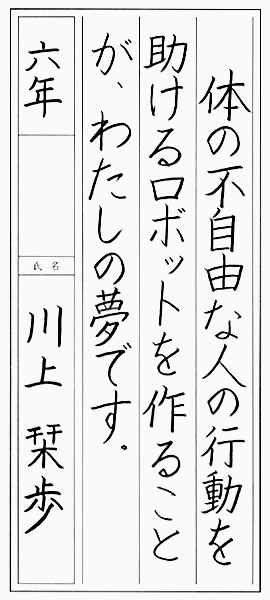 体の不自由な人の行動を
助けるロボットを作ること
が、わたしの夢です。
六年
氏名
川上 栞歩